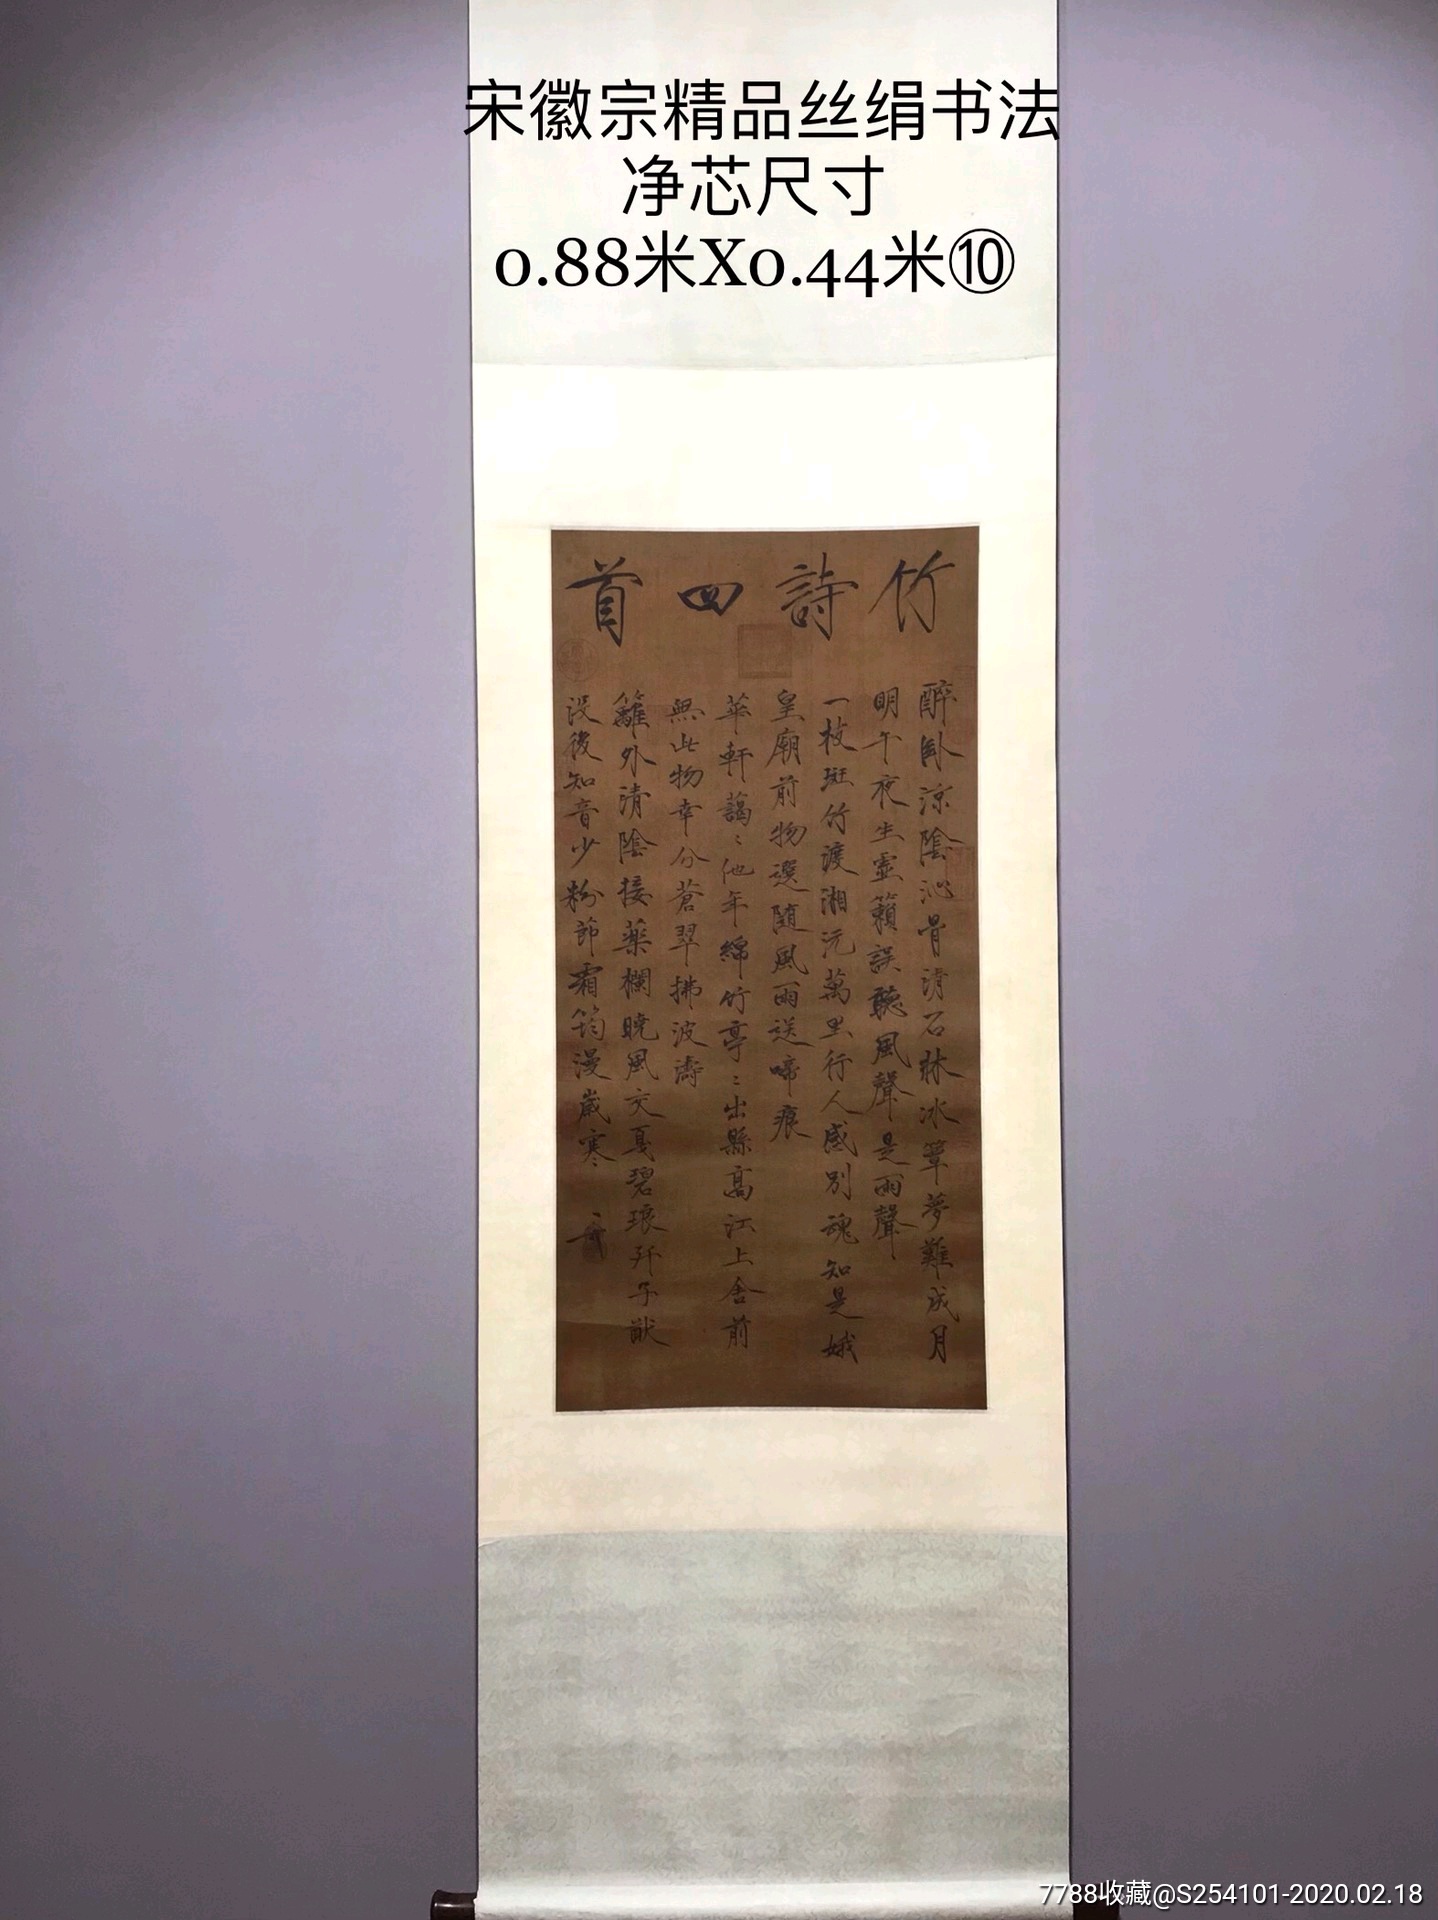 宋徽宗精品丝绢书法
净芯尺寸
0.88米X0.44米⑩
竹詩四首
醉卧涼陰沁骨清石牀冰簟夢難成月
明午夜生虛籟誤聽風聲是雨聲
一枝斑竹渡湘沅萬里行人感別魂知是娥
皇廟前物遠隨風雨送啼痕
華軒藹〻他年綿竹亭〻出縣高江上舍前
無此物幸分蒼翠拂波濤
籬外清陰接藥欄曉風交戛碧琅玕子猷
沒後知音少粉節霜筠漫歲寒
7788收藏@S254101-2020.02.18